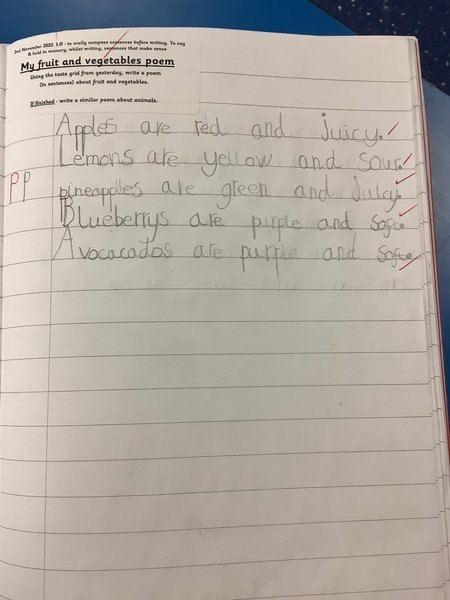 2nd November 2022 LO - to orally compose sentences before writing. To say
& hold in memory, whilst writing, sentences that make sense
My fruit and vegetables poem
Using the taste grid from yesterday, write a poem
(in sentences) about fruit and vegetables.
If finished - write a similar poem about animals.
Apples are red and juicy.
Lemons are yellow and sour.
Pp pineapples are green and juicy.
Blueberrys are purple and soft.
Avocacados are purple and soft.